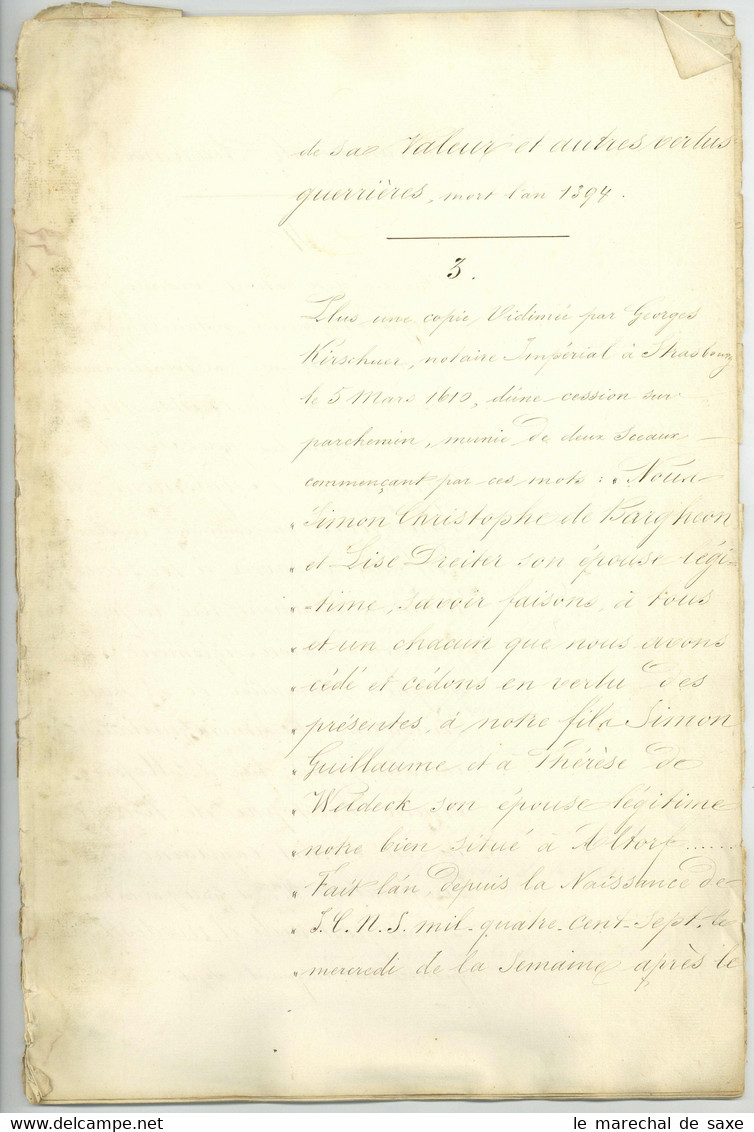 de sa valeur et autres vertus
guerrières, mort l'an 1394.
3.
Plus une copie Vidimée par Georges
Kirschner, notaire Impérial à Strasbourg
le 5 Mars 1612, d'une cession sur
parchemin, munie de deux Sceaux
commençant par ces mots: "Nous
" Simon Christophe de Bargheon
" et Lise Dreiter son épouse légi-
" -time, savoir faisons, à tous
" et un chacun que nous avons
" cédé et cédons en vertu des
" présentes, à notre fils Simon
" Guillaume et à Thérèse de
" Weldeck son épouse légitime
" notre bien situé à Altorf......
" Fait l'an, depuis la Naissance de
" J. C. N. S. mil-quatre-cent-sept, le
" mercredi de la Semaine après le
le marechal de saxe